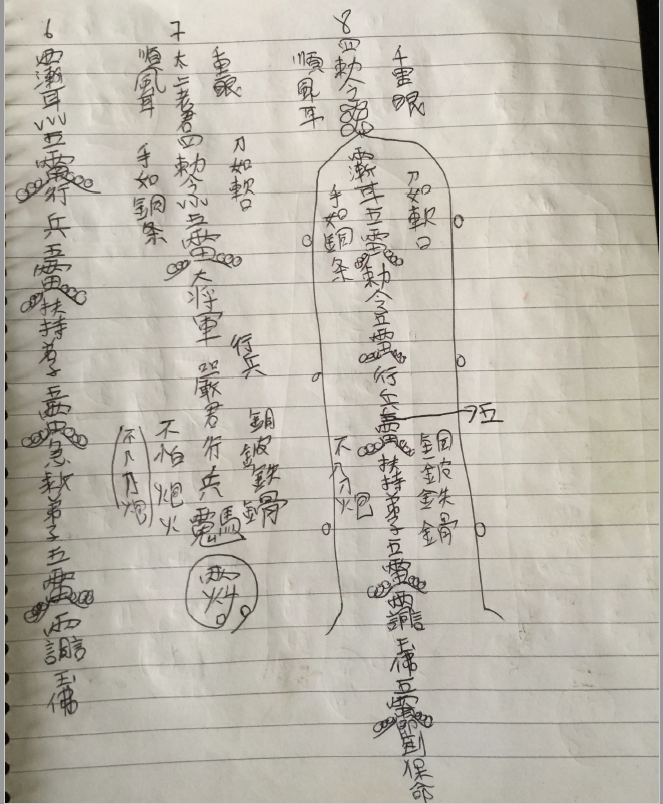 8
四勅令
千里眼
順風耳
漸耳五雷勅令五雷行兵雷扶持弟子五雷西 玉佛五雷 保命
刀如軟口
手如銅条
五
不入刀炮
銅皮鉄骨
7
太上老君四勅令 五雷大将軍 嚴君行兵
千里眼
順風耳
刀如軟口
手如銅条
行兵
銅皮鉄骨
不怕炮火
(不入刀炮)
6
西漸耳 五雷行兵五雷扶持弟子五雷急救弟子五雷西 玉佛